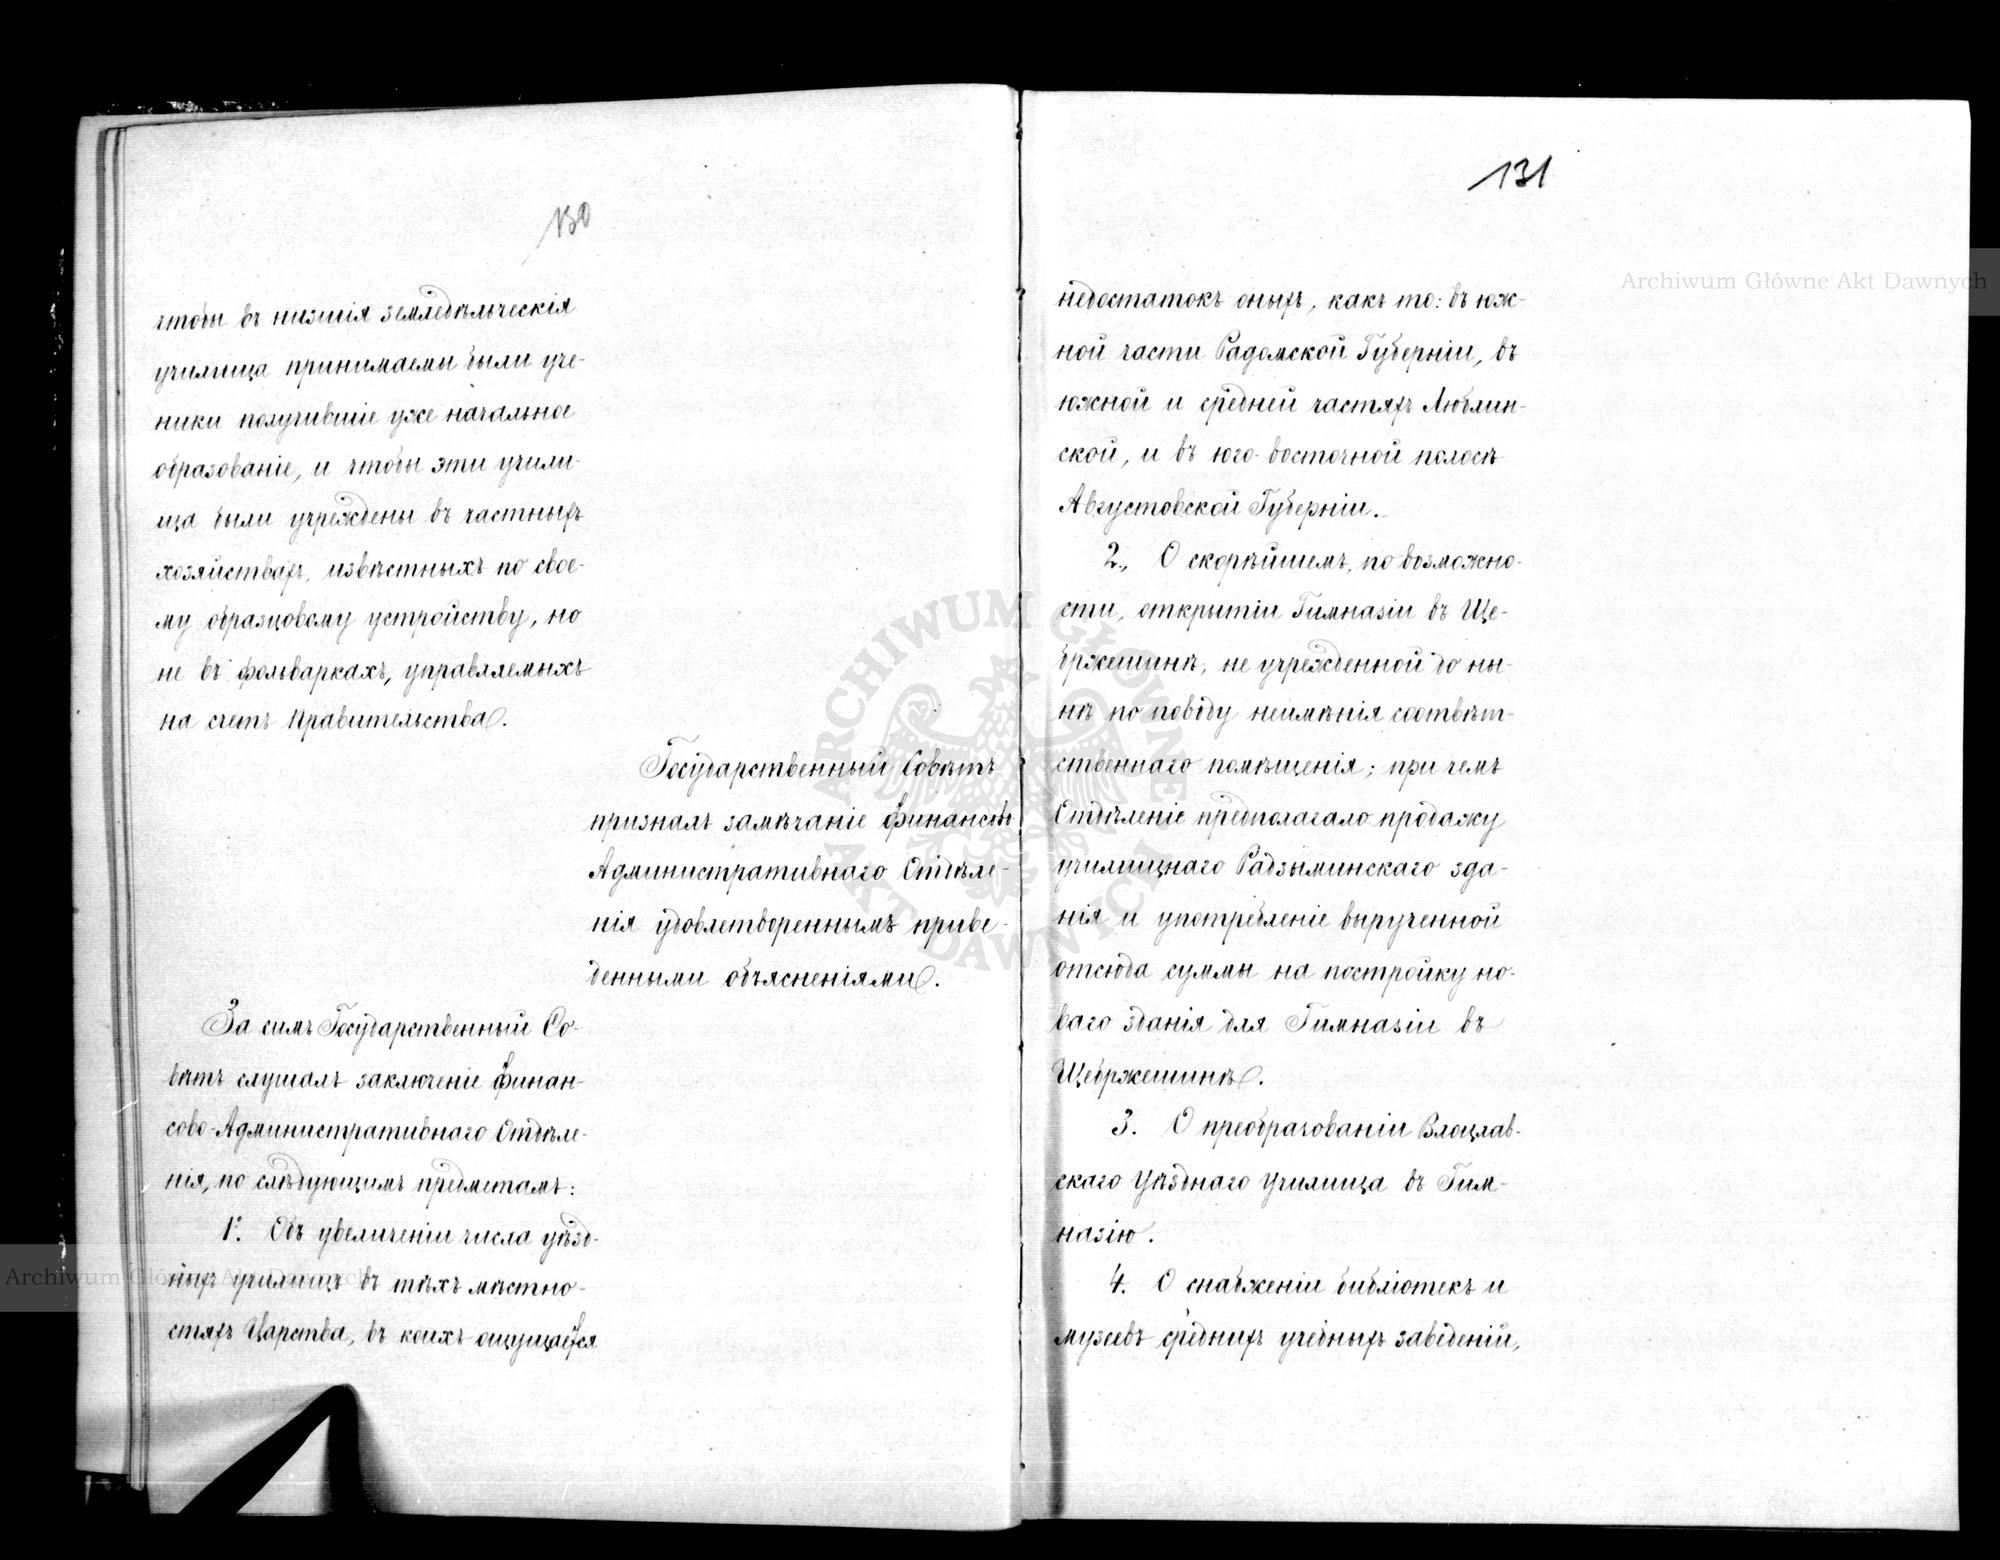 130
чтобы въ низшія земледѣльческія
училища принимаемы были уче-
ники получившіе уже начальное
образованіе, и чтобы эти учили-
ща были учреждены въ частныхъ
хозяйствахъ, извѣстныхъ по свое-
му образцовому устройству, но
не въ фольваркахъ, управляемыхъ
на счетъ Правительства.
Государственный Совѣтъ
призналъ замѣчаніе Финансово
Административнаго Отдѣле-
нія удовлетвореннымъ приве-
денными объясненіями.
За симъ Государственный Со-
вѣтъ слушалъ заключеніе Финан-
сово-Административнаго Отдѣле-
нія, по слѣдующимъ предметамъ:
1. Объ увеличеніи числа уѣзд-
ныхъ училищъ въ тѣхъ мѣстно-
стяхъ Царства, въ коихъ ощущается
131
недостатокъ оныхъ, какъ то: въ юж-
ной части Радомской Губерніи, въ
южной и средней частяхъ Люблин-
ской, и въ юго-восточной полосѣ
Августовской Губерніи.
2., О скорѣйшемъ, по возможно-
сти, открытіи Гимназіи въ Ще-
бржешинѣ, не учрежденной до ны-
нѣ по поводу неимѣнія соотвѣт-
ственнаго помѣщенія; при чемъ
Отдѣленіе предполагало продажу
училищнаго Радзыминскаго зда-
нія и употребленіе вырученной
отсюда суммы на постройку но-
ваго зданія для Гимназіи въ
Щебржешинѣ.
3. О преобразованіи Влоцлав-
скаго Уѣзднаго Училища въ Гим-
назію.
4. О снабженіи библіотекъ и
музеевъ среднихъ учебныхъ заведеній,
Archiwum Główne Akt Dawnych
Archiwum Główne Akt Dawnych
ARCHIWUM GŁÓWNE
AKT DAWNYCH